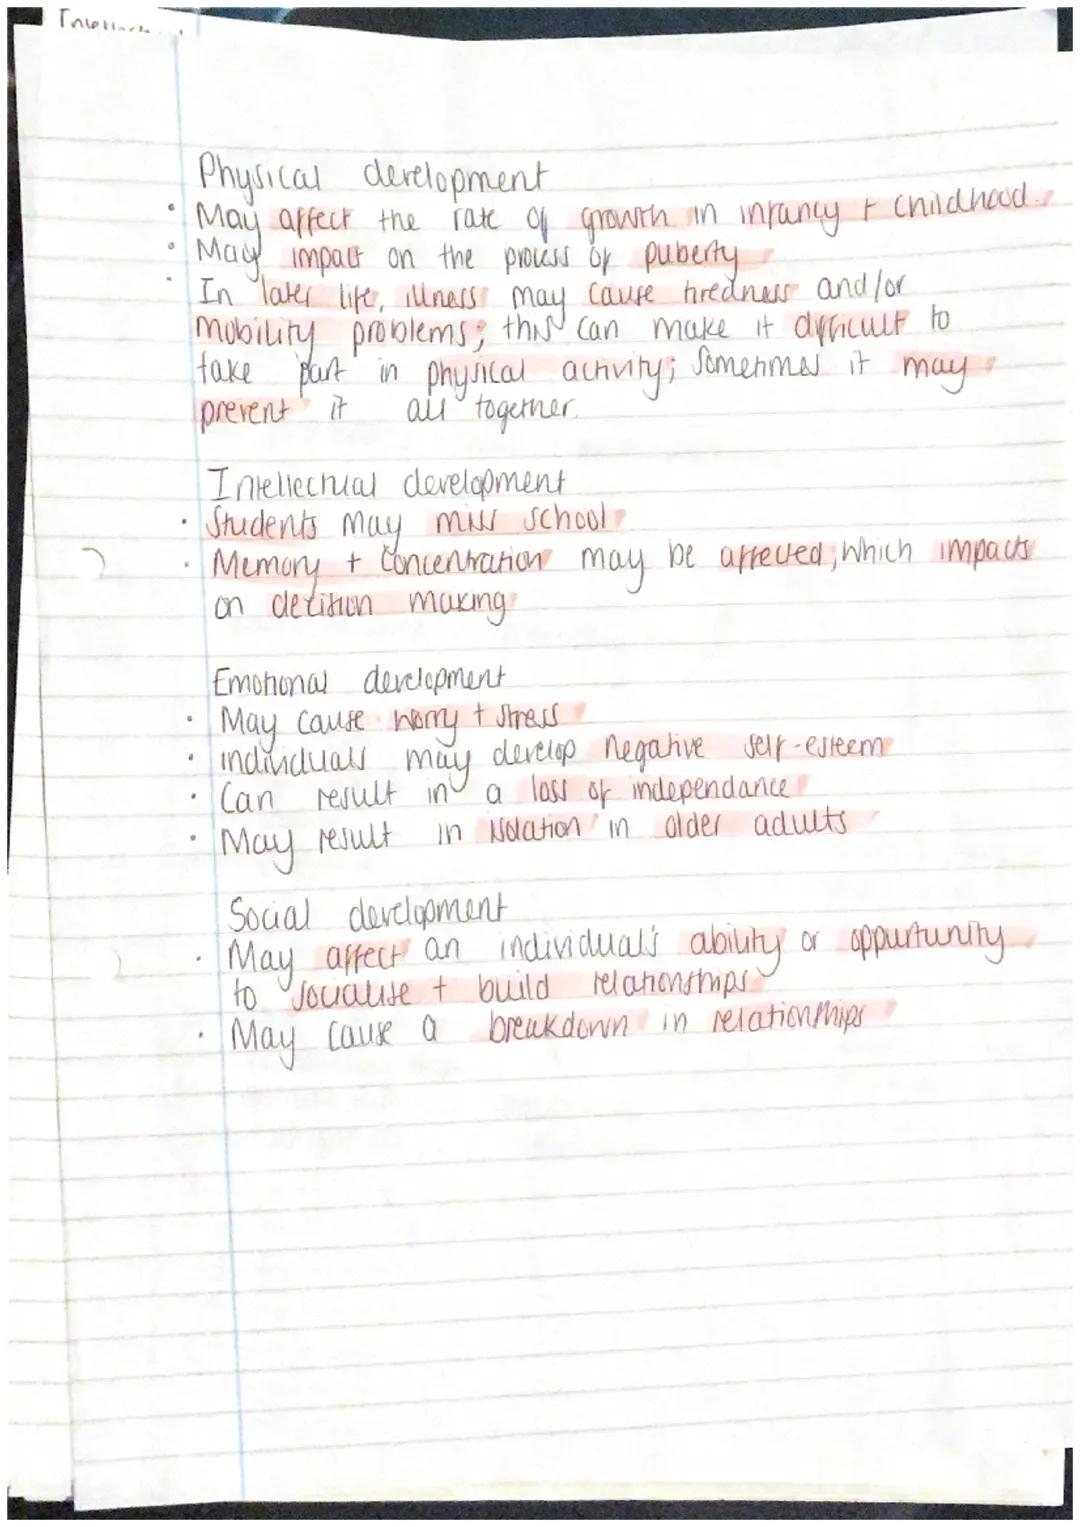 Physical development
• May affect the rate of growth in infancy + childhood.
• May impact on the process of puberty
• In later life, illness may cause tiredness and/or
mobility problems; this can make it difficult to
take part in physical activity; sometimes it may
prevent it all together.
Intellectual development
• Students may miss school
• Memory + concentration may be affected; which impacts
on decition making
Emotional development
• May cause worry + stress
• individuals may develop negative self-esteem
• Can result in a loss of independance
• May result in isolation in older adults
Social development
• May affect an individual's ability or oppurtunity
to socialise + build relationships
• May cause a breakdown in relationships